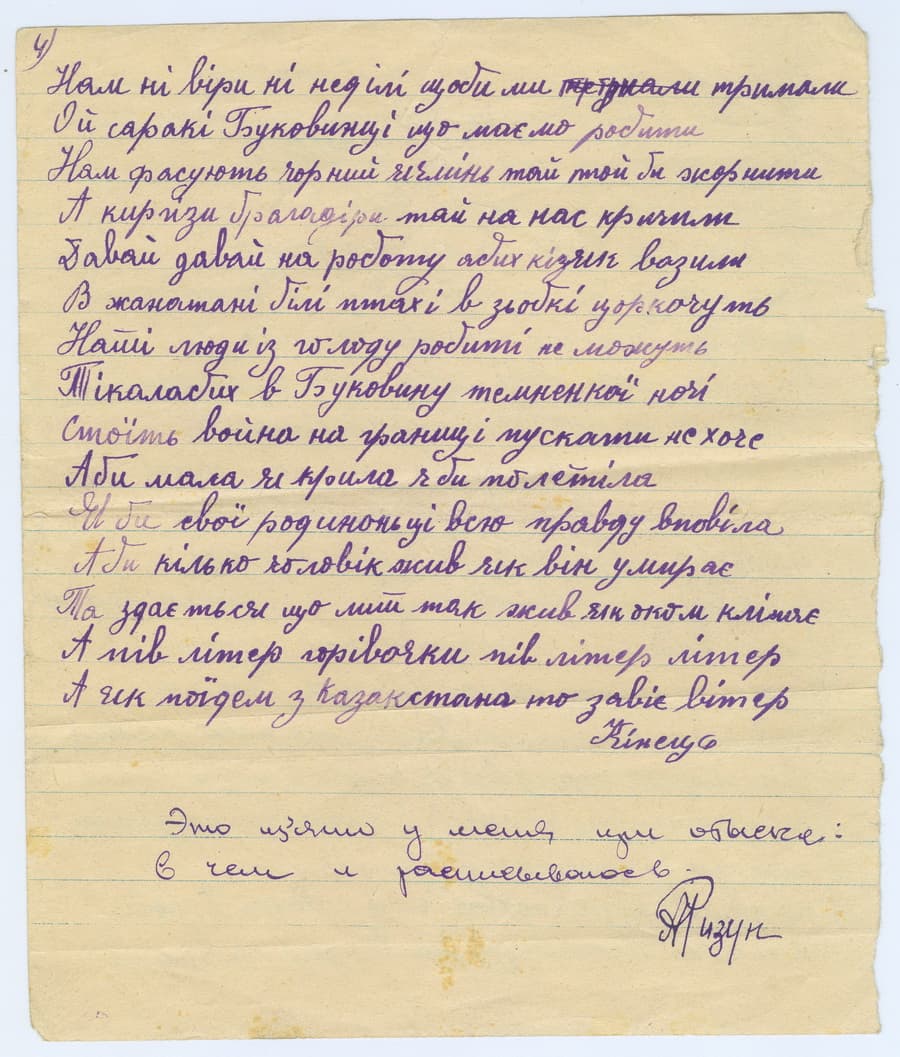 4)
Нам ні віри ні неділі щоби ми тримали
Ой саракі Буковинці що маємо робити
Нам фасують чорний ячмінь тай той би жорнити
А киргізи брагадіри тай на нас кричили
Давай давай на роботу абих кізяк возили
В жанатані білі птахі в зьобкі цоркочуть
Наші люди із голоду робиті не можуть
Тікалабих в Буковину темненкої ночі
Стоїть война на границі пускати не хоче
Аби мала я крила я би полетіла
Я би свої родиноньці всю правду вповіла
Аби кілько чоловік жив як він умирає
Та здається що лиш так жив як оком кліпає
А пів літер горівочки пів літер літер
А як поїдем з Казакстана то завіє вітер
Кінець
Это изъято у меня при обыске:
в чем и расписываюсь.
Ризун